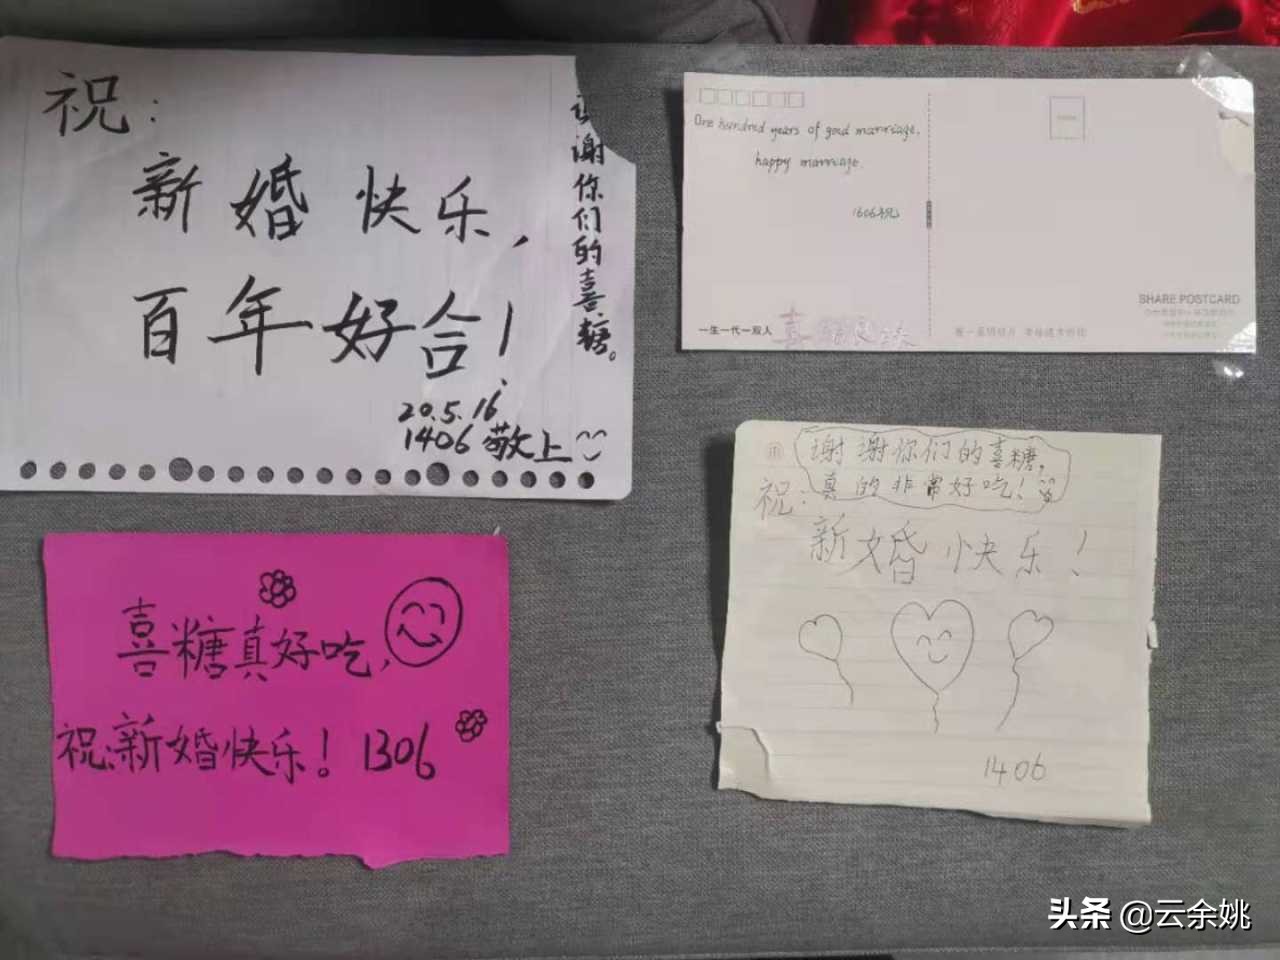 祝：
新婚快乐，
百年好合！
谢谢你们的喜糖。
20.5.16
1406敬上
One hundred years of good marriage,
happy marriage.
1606祝
一生一代一双人
SHARE POSTCARD
喜糖真好吃，
祝：新婚快乐！1306
谢谢你们的喜糖，
真的非常好吃！
祝：
新婚快乐！
1406
头条 @云余姚